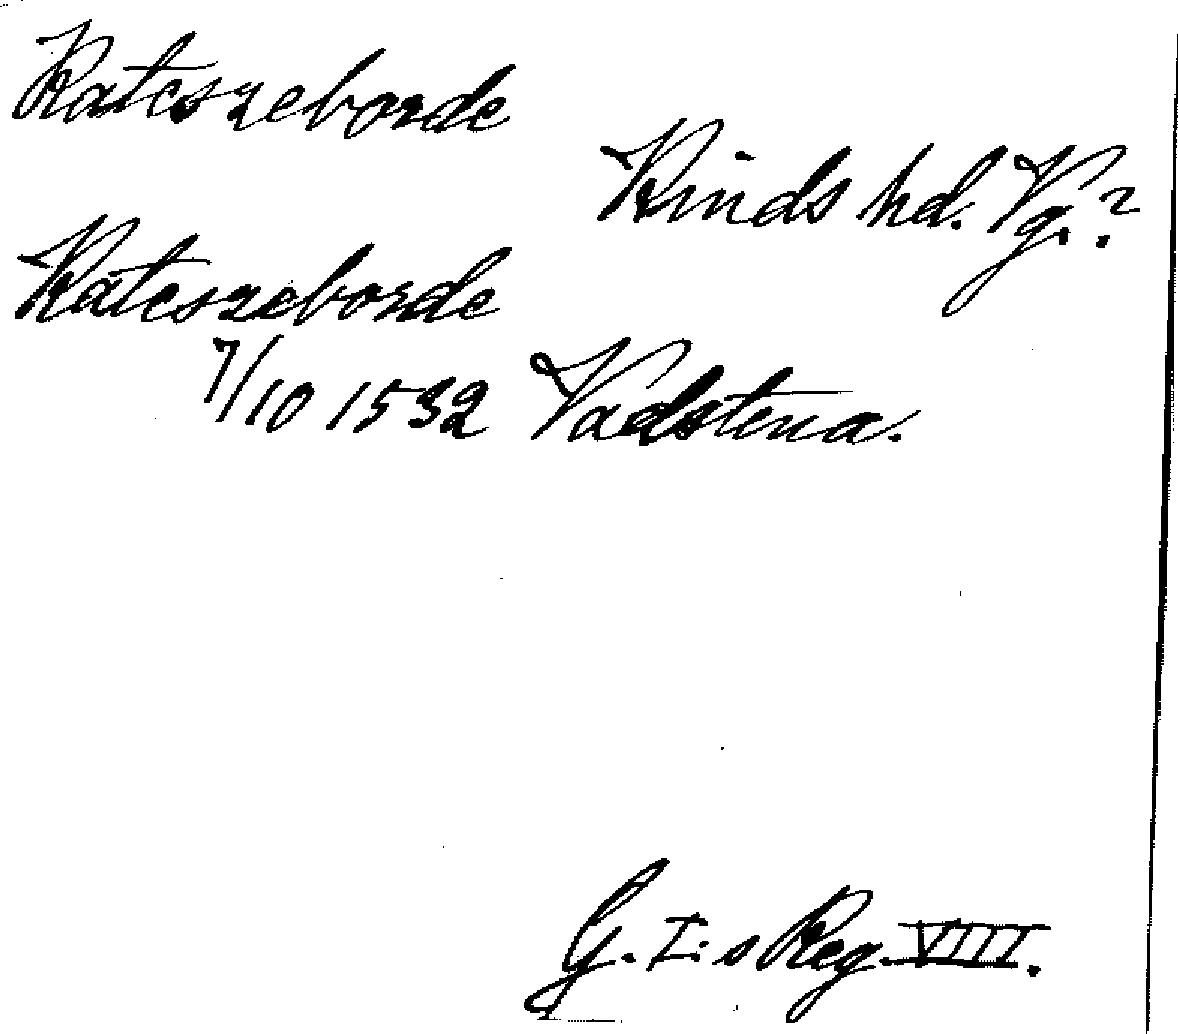 Kateszeborde
Kinds hd. Vg.?
Kateszeborde
7/10 1532 Vadstena.
G. I:s Reg. VIII.